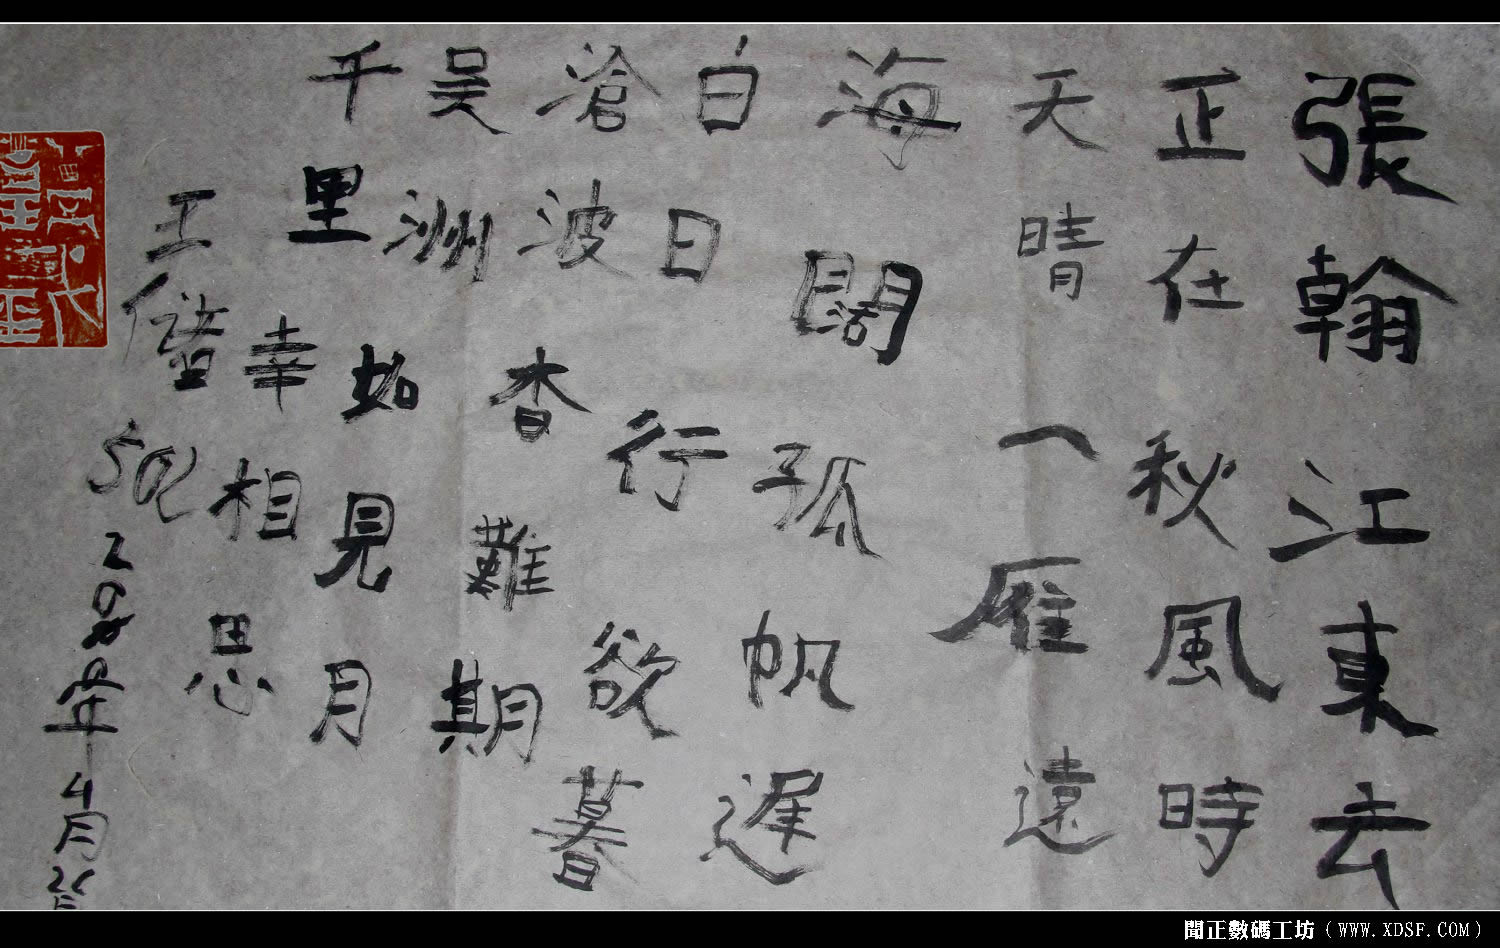 張翰江東去
正在秋風時
天晴一雁遠
海闊孤帆遲
白日行欲暮
滄波杳難期
吳洲如見月
千里幸相思
王 年4月26日
聞正數碼工坊(WWW.XDSF.COM)